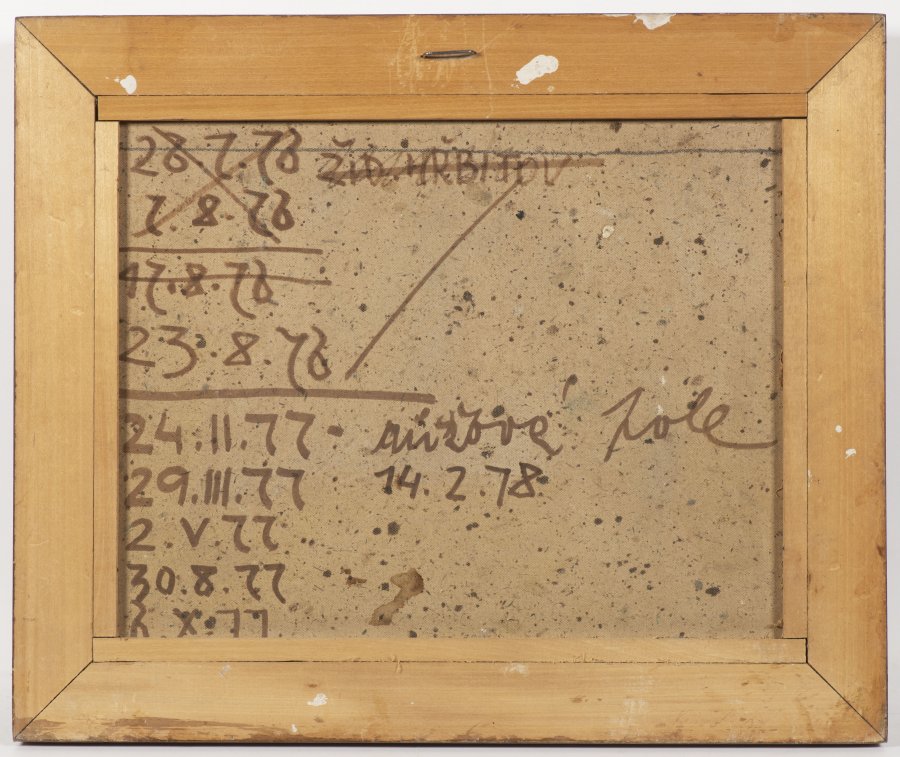 28 7.76 ŽID. HŘBITOV
7. 8. 76
17.8.76
23.8.76
24.II.77 - růžové pole
29.III.77 14.2.78
2.V.77
30.8.77
X.77